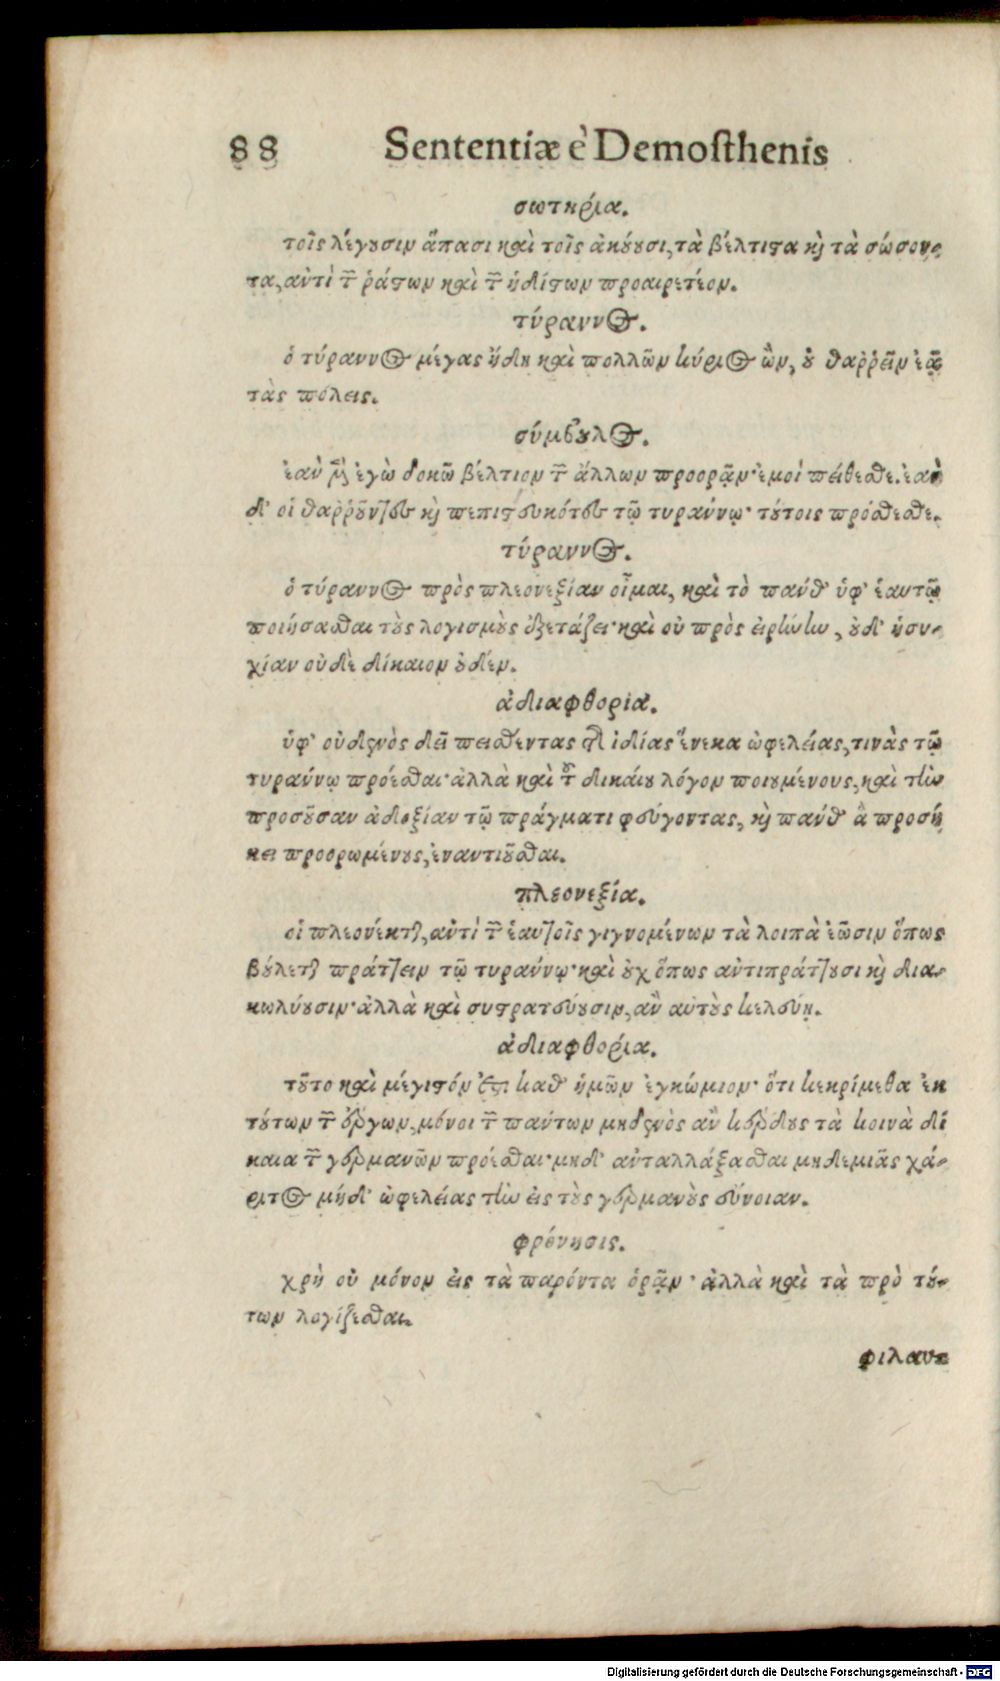 88 Sententiæ è Demosthenis
σωτηρία.
τοῖς λέγουσιν ἅπασι καὶ τοῖς ἀκούουσι, τὰ βέλτιστα καὶ τὰ σώσον-
τα, ἀντὶ τῶν ῥάστων καὶ τῶν ἡδίστων προαιρετέον.
τύραννος.
ὁ τύραννος μέγας ἤδη καὶ πολλῶν κύριος ὢν, οὐ θαῤῥεῖν ἐᾷ
τὰς πόλεις.
σύμβουλος.
ἐὰν μὲν ἐγὼ δοκῶ βέλτιον τῶν ἄλλων προορᾷν· ἐμοὶ πείθεσθε. ἐὰν
δ' οἱ θαῤῥοῦντες καὶ πεπιστευκότες τῷ τυράννῳ· τούτοις πρόσθεσθε.
τύραννος.
ὁ τύραννος πρὸς πλεονεξίαν οἶμαι, καὶ τὸ πάνθ' ὑφ' ἑαυτῷ
ποιήσασθαι τοὺς λογισμοὺς ἐξετάζει· καὶ οὐ πρὸς εἰρήνην, οὐδ' ἡσυ-
χίαν οὐδὲ δίκαιον οὐδέν.
ἀδιαφθορία.
ὑφ' οὐδενὸς δεῖ πεισθέντας τῆς ἰδίας ἕνεκα ὠφελείας, τινὰς τῷ
τυράννῳ πρόεσθαι· ἀλλὰ καὶ τοῦ δικαίου λόγον ποιουμένους, καὶ τὴν
προσοῦσαν ἀδοξίαν τῷ πράγματι φεύγοντας, καὶ πάνθ' ἃ προσή
κει προορωμένους, ἐναντιοῦσθαι.
πλεονεξία.
οἱ πλεονέκται, ἀντὶ τῶν ἑαυτοῖς γιγνομένων τὰ λοιπὰ ἐῶσιν ὅπως
βούλεται πράττειν τῷ τυράννῳ· καὶ οὐχ ὅπως ἀντιπράττουσι καὶ δια-
κωλύουσιν· ἀλλὰ καὶ συστρατεύουσιν, ἂν αὐτοὺς κελεύῃ.
ἀδιαφθορία.
τοῦτο καὶ μέγιστόν ἐστι καθ' ἡμῶν ἐγκώμιον· ὅτι κεκρίμεθα ἐκ
τούτων τῶν ἔργων, μόνοι τῶν πάντων μηδενὸς ἂν κέρδους τὰ κοινὰ δί
καια τῶν γερμανῶν πρόεσθαι· μηδ' ἀνταλλάξασθαι μηδεμιᾶς χά-
ριτος μήδ' ὠφελείας τὴν εἰς τοὺς γερμανοὺς εὔνοιαν.
φρόνησις.
χρὴ οὐ μόνον εἰς τὰ παρόντα ὁρᾷν· ἀλλὰ καὶ τὰ πρὸ τού-
των λογίζεσθαι.
φιλαυ-
Digitalisierung gefördert durch die Deutsche Forschungsgemeinschaft - DFG